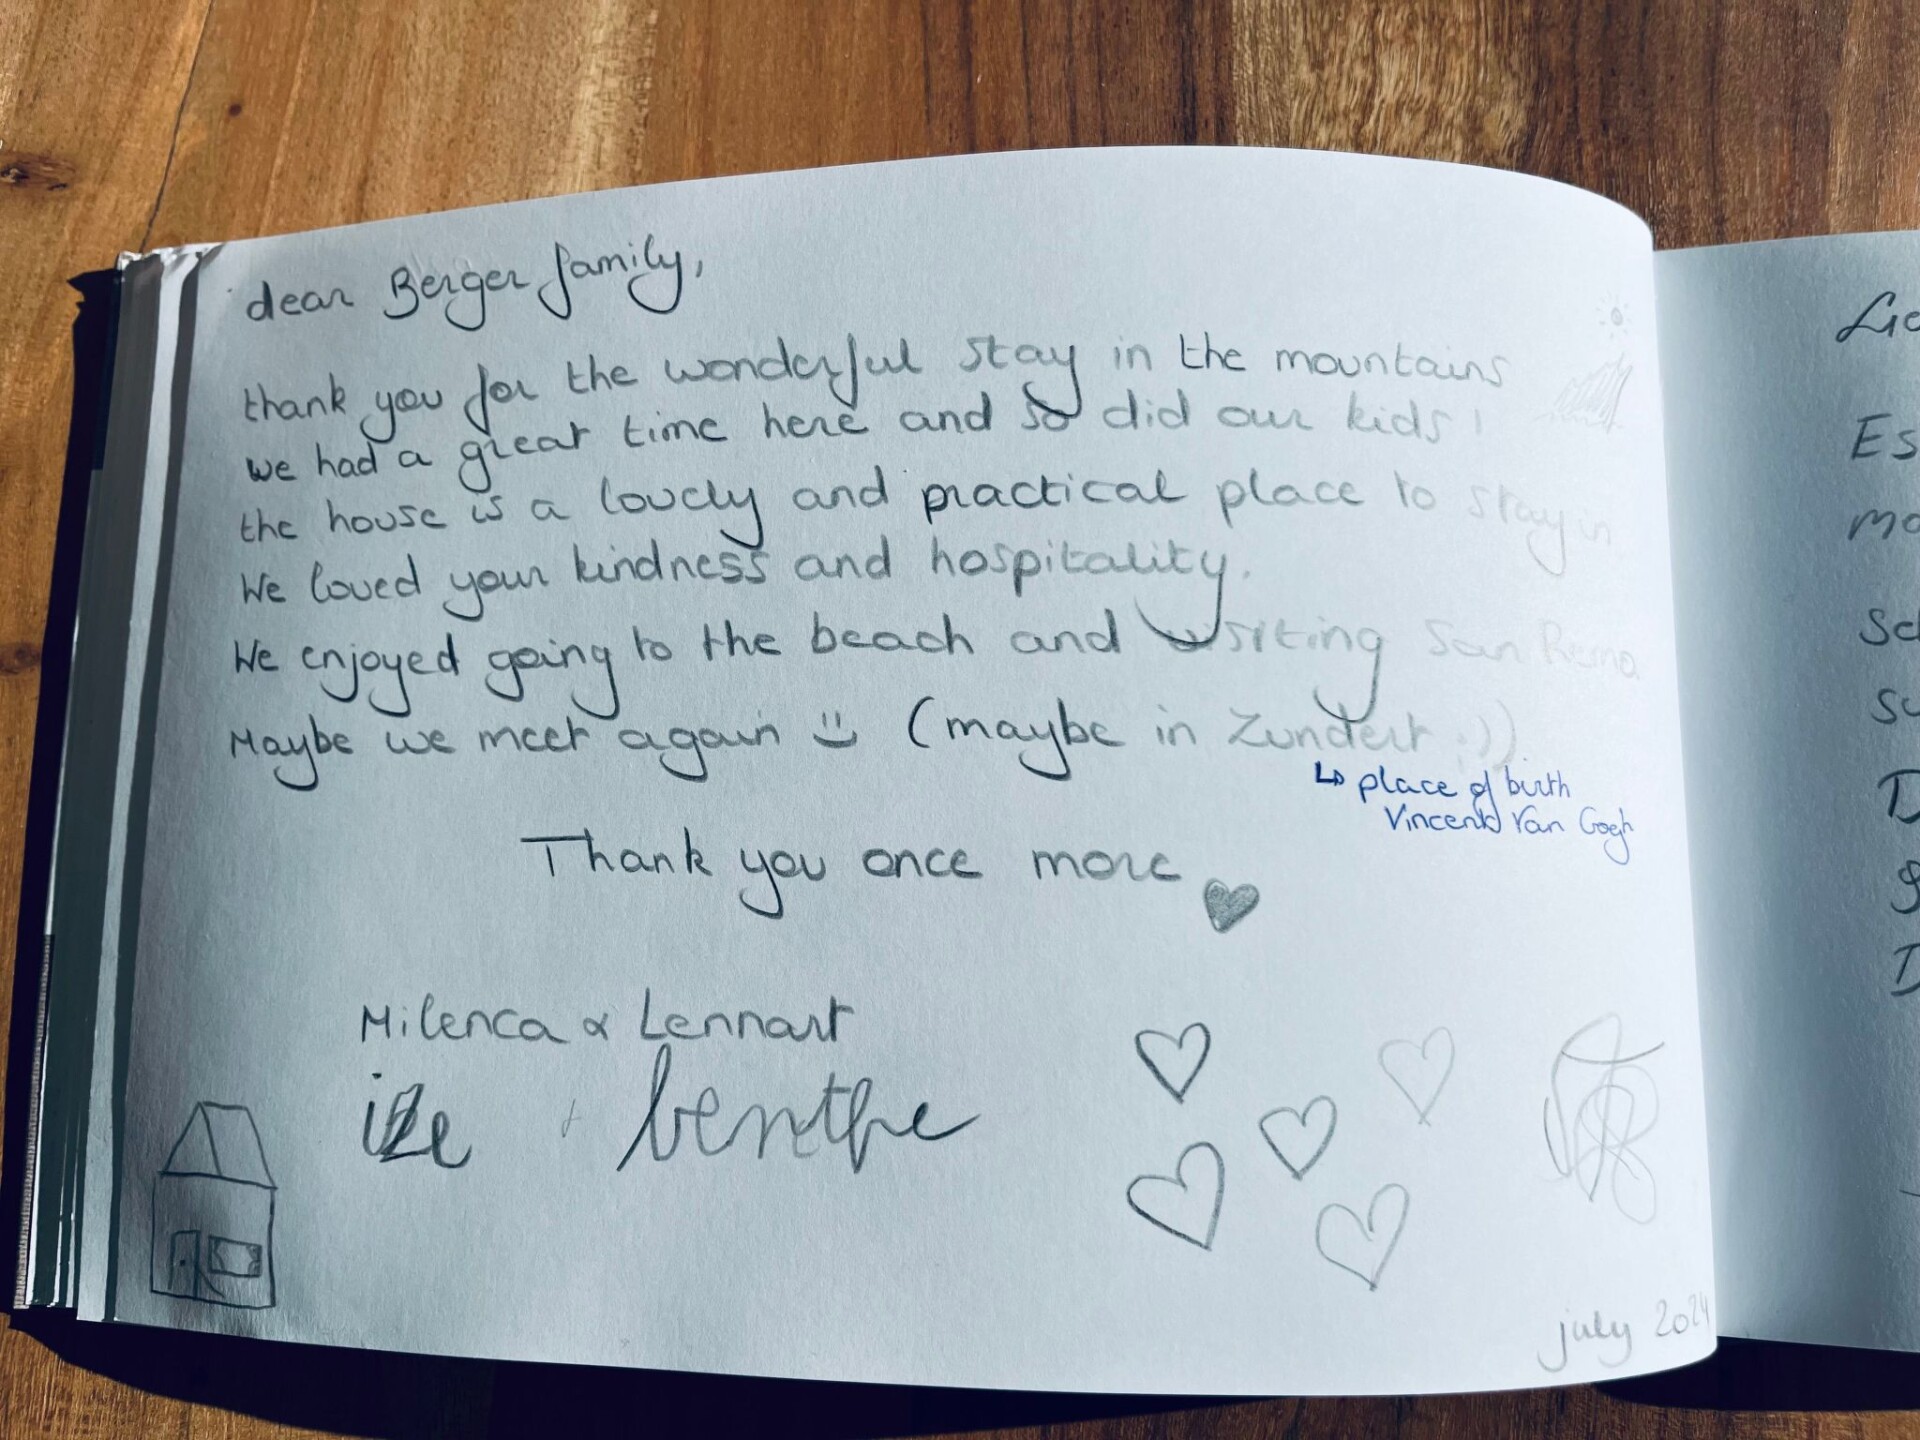 dear Berger family,
thank you for the wonderful stay in the mountains
we had a great time here and so did our kids!
the house is a lovely and practical place to stay in
We loved your kindness and hospitality.
We enjoyed going to the beach and visiting San Remo.
Maybe we meet again :) (maybe in Zundert ;))
↳ place of birth
Vincent Van Gogh
Thank you once more ♥
Milenca & Lennart
+ benthe
july 2024
Lie
Es
mo
sc
su
D
D